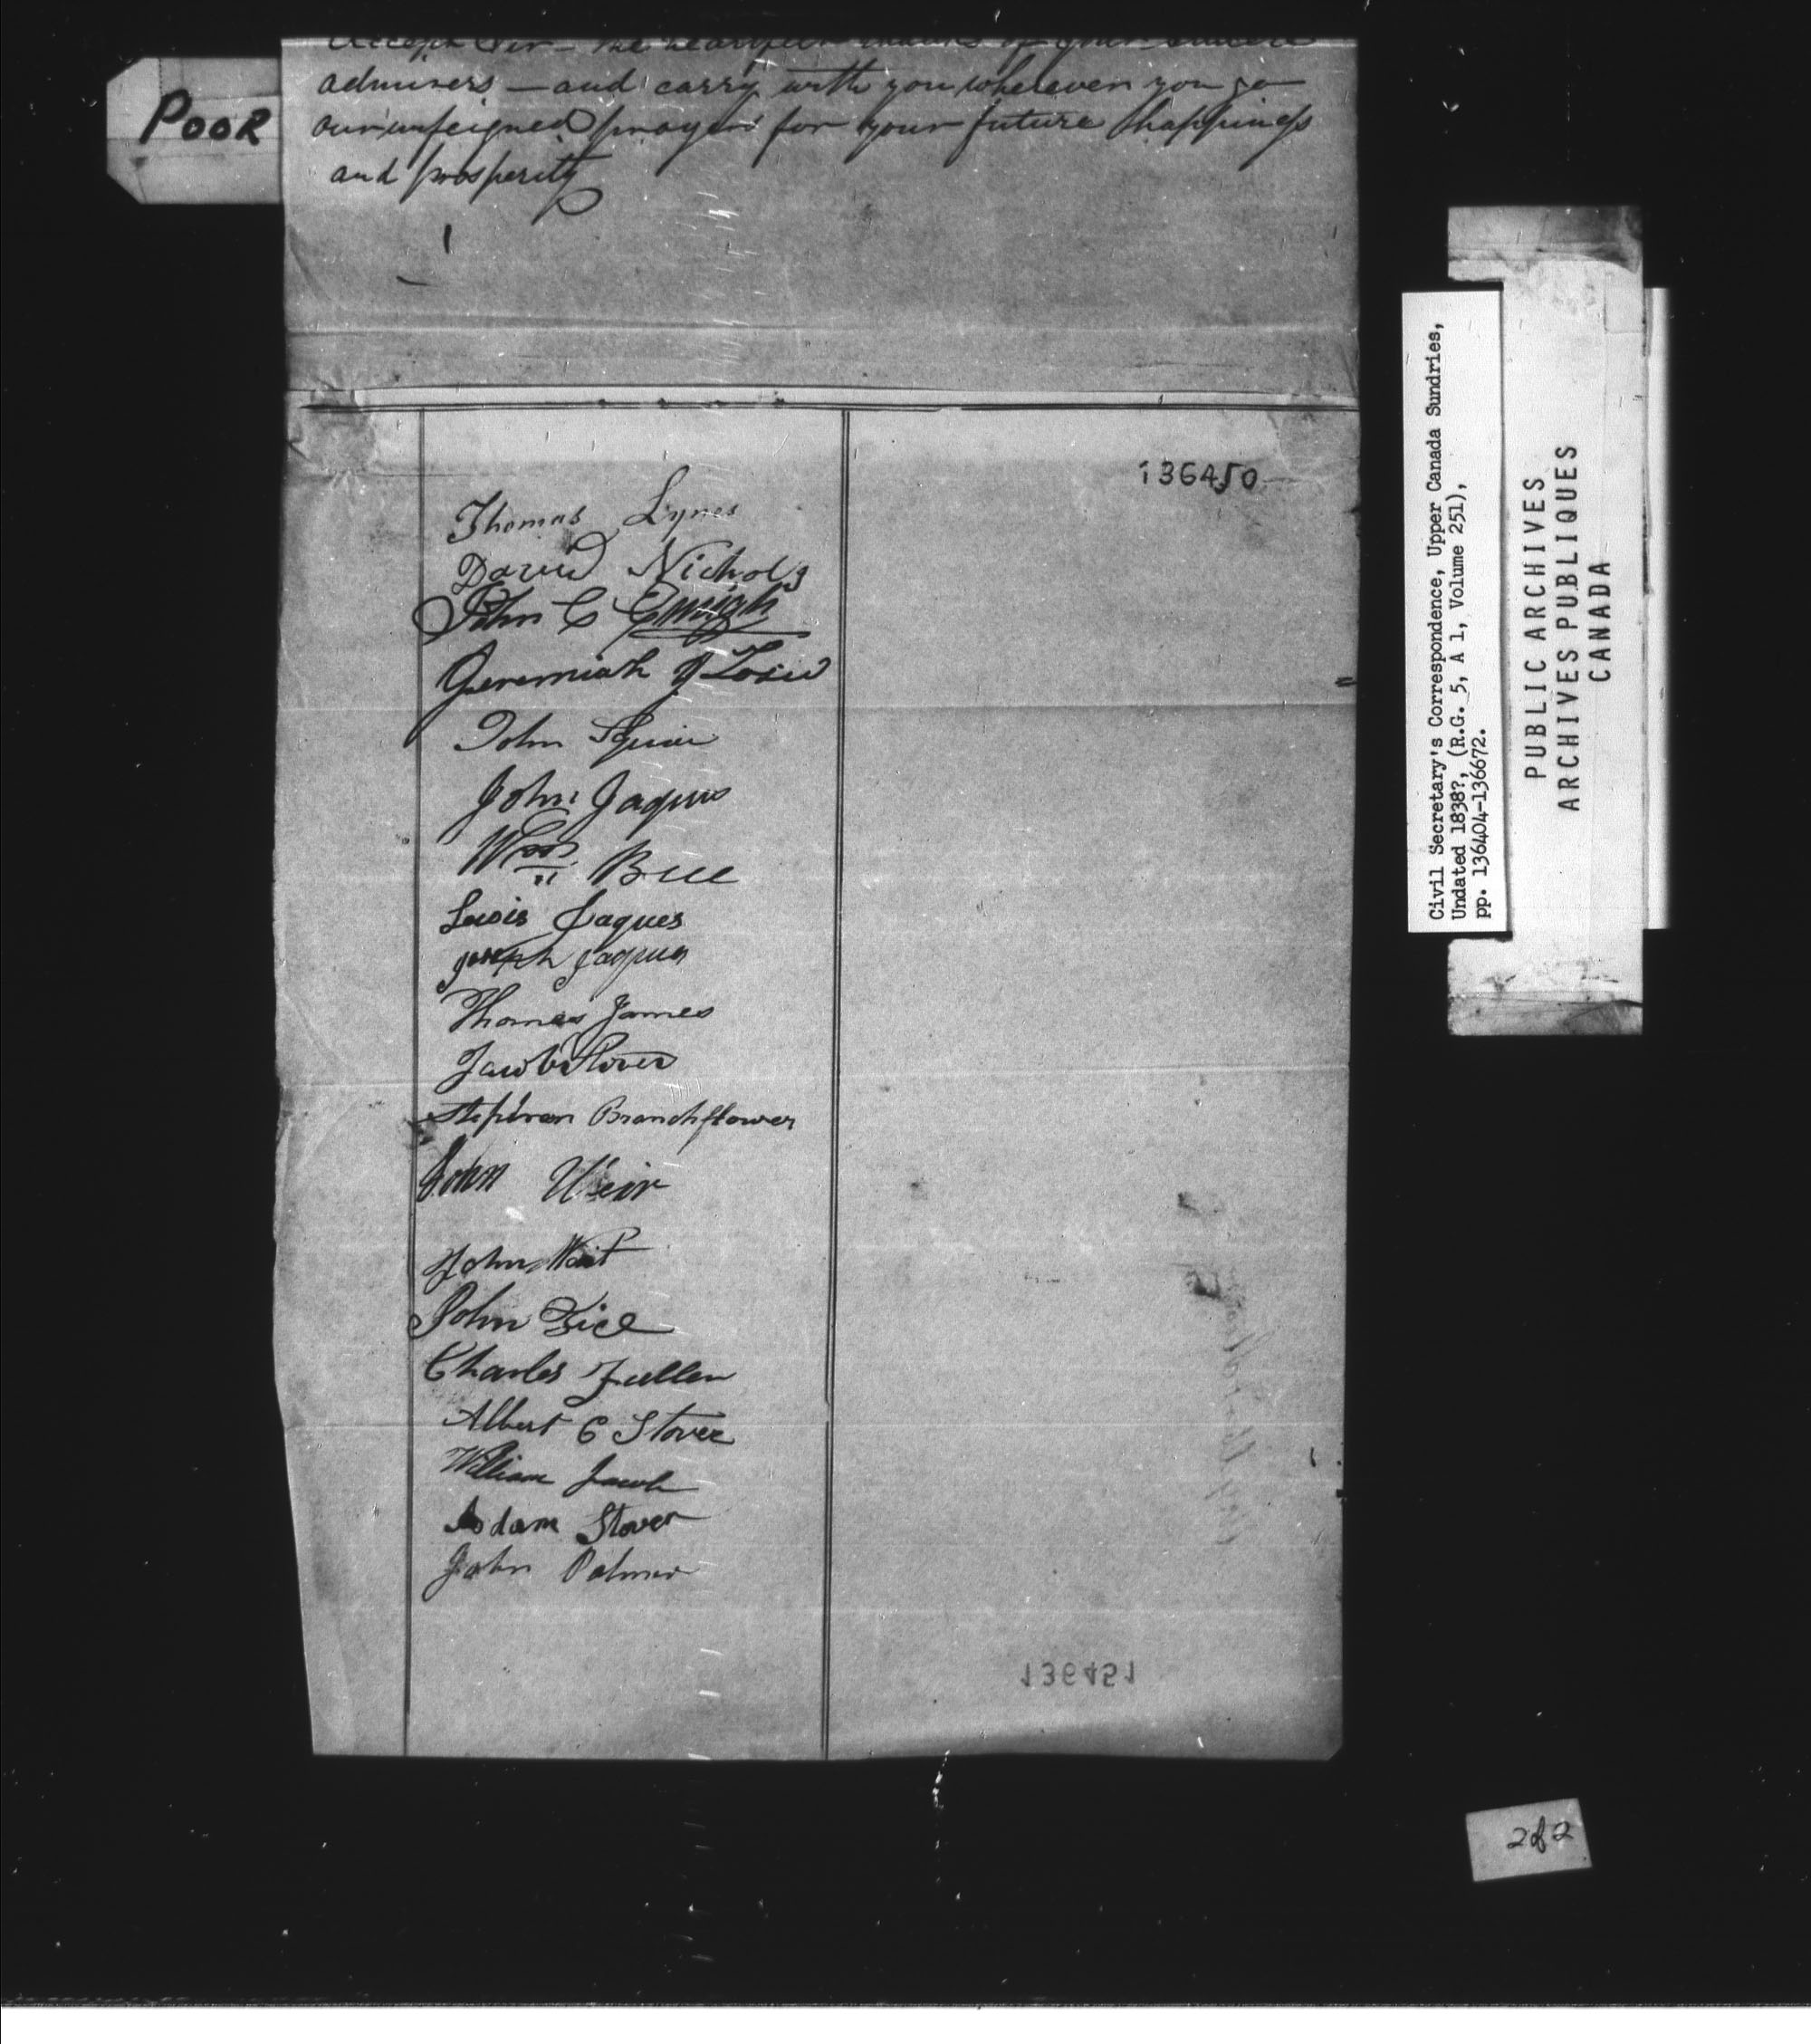 Accept Sir - the heartfelt thanks of your sincere
admirers — and carry with you wherever you go
our unfeigned prayers for your future happiness
and prosperity
POOR
136450
Thomas Lynes
David Nichols
John C
Jeremiah J
John Squier
John Jaques
Wm Bell
Lewis Jaques
Joseph Jaques
Thomas James
Jacob Stover
Stephven Branchflower
John Weir
John Wait
John Tice
Charles Fuller
Albert C Stover
William Jacob
Adam Stover
John Palmer
136451
Civil Secretary's Correspondence, Upper Canada Sundries,
Undated 1838?, (R.G. 5, A 1, Volume 251),
pp. 136404-136672.
PUBLIC ARCHIVES
ARCHIVES PUBLIQUES
CANADA
2 of 2